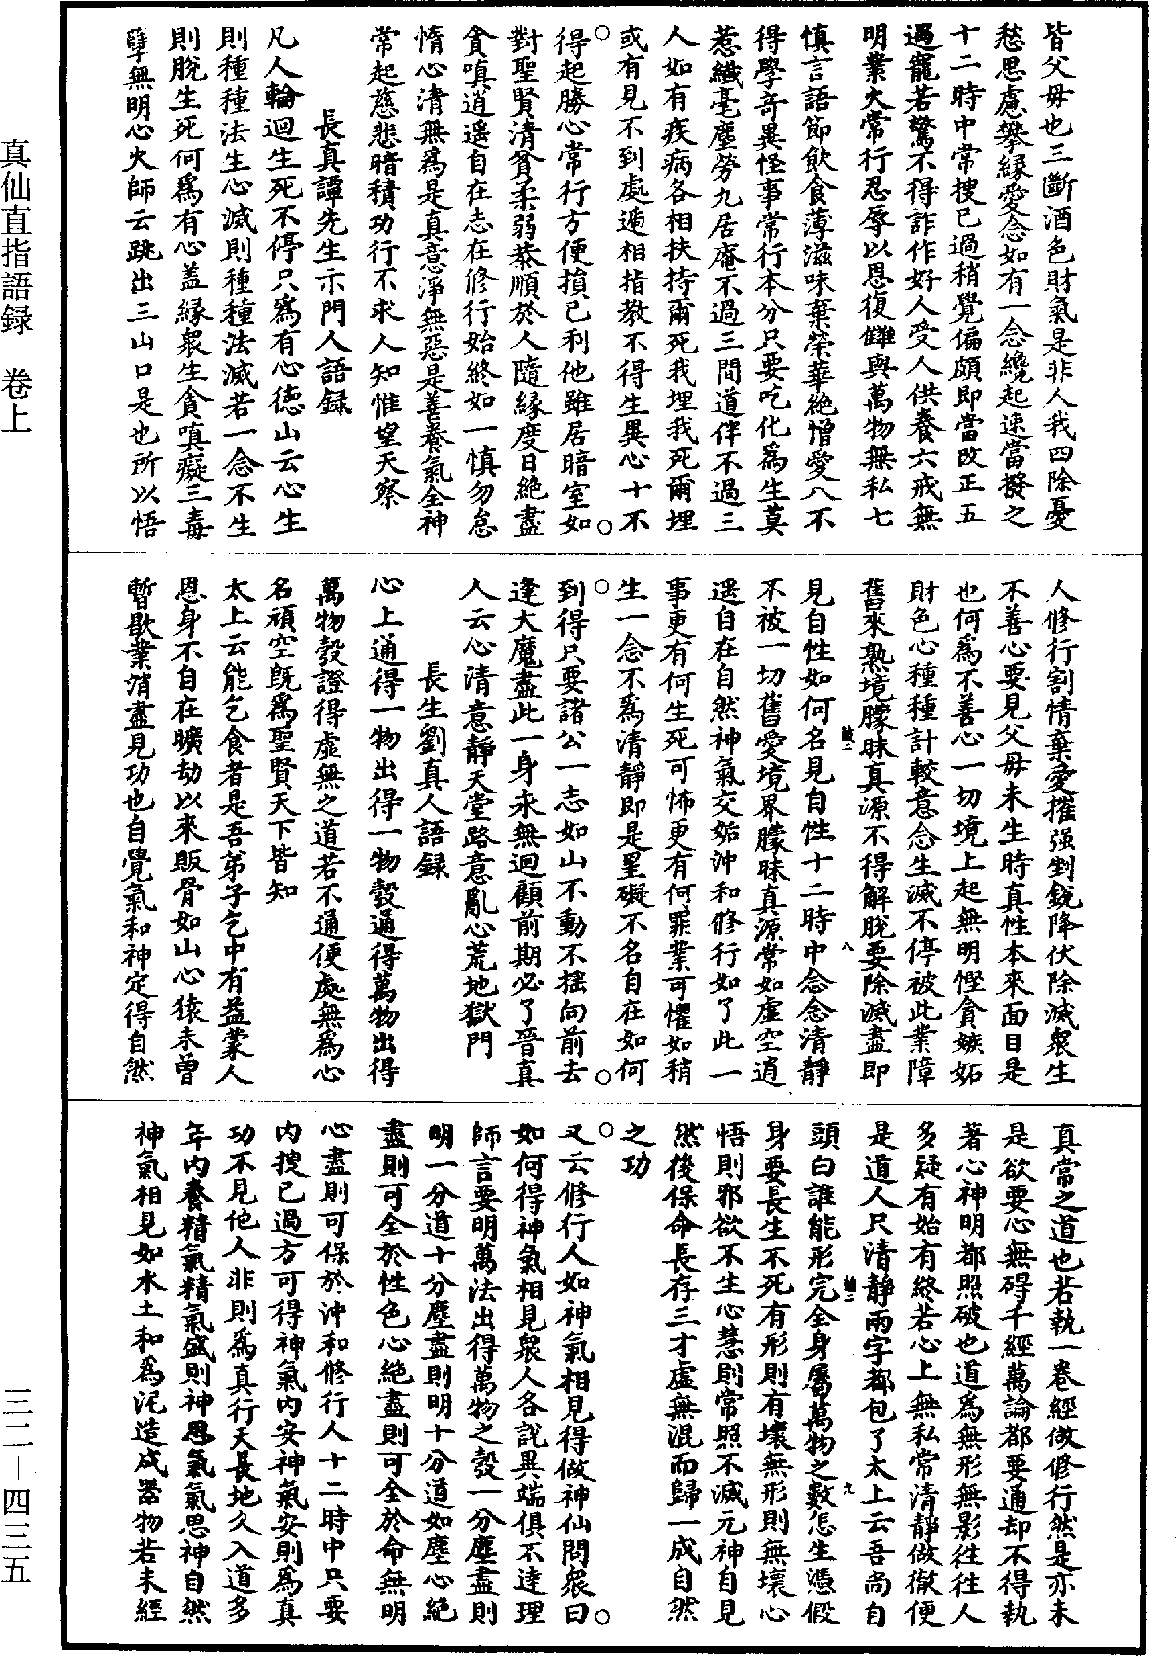 真仙直指語録　卷上
皆父母也三斷酒色財氣是非人我四除憂
愁思慮攀緣愛念如有一念纔起速當撥之
十二時中常搜己過稍覺偏頗即當改正五
遇寵若驚不得詐作好人受人供養六戒無
明業火常行忍辱以恩復讎與萬物無私七
慎言語節飲食薄滋味棄榮華絶憎愛八不
得學奇異怪事常行本分只要吃化爲生莫
惹纖毫塵勞九居庵不過三間道伴不過三
人如有疾病各相扶持爾死我埋我死爾埋
或有見不到處遞相指教不得生異心十不
得起勝心常行方便損己利他雖居暗室如
對聖賢清貧柔弱恭順於人隨緣度日絶盡
貪嗔逍遥自在志在修行始終如一慎勿怠
惰心清無爲是真意淨無惡是善養氣全神
常起慈悲暗積功行不求人知惟望天察
長真譚先生示門人語録
凡人輪迴生死不停只爲有心德山云心生
則種種法生心滅則種種法滅若一念不生
則脱生死何爲有心蓋緣衆生貪嗔癡三毒
孽無明心火師云跳出三山口是也所以悟
人修行割情棄愛摧强剉鋭降伏除滅衆生
不善心要見父母未生時真性本來面目是
也何爲不善心一切境上起無明慳貪嫉妬
財色心種種計較意念生滅不停被此業障
舊來熟境朦昧真源不得解脱要除滅盡即
見自性如何名見自性十二時中念念清靜
不被一切舊愛境界朦昧真源常如虚空逍
遥自在自然神氣交姤沖和修行如了此一
事更有何生死可怖更有何罪業可懼如稍
生一念不爲清靜即是罣礙不名自在如何
到得只要諸公一志如山不動不揺向前去
逢大魔盡此一身永無迴顧前期必了晉真
人云心清意靜天堂路意亂心荒地獄門
長生劉真人語録
心上通得一物出得一物殼通得萬物出得
萬物殼證得虚無之道若不通便處無爲心
名頑空既爲聖賢天下皆知
太上云能乞食者是吾弟子乞中有益業人
恩身不自在曠劫以來販骨如山心猿未曾
暫歇業消盡見功也自覺氣和神定得自然
真常之道也若執一卷經做修行然是亦未
是欲要心無碍千經萬論都要通却不得執
著心神明都照破也道爲無形無影往往人
多疑有始有終若心上無私常清靜做徹便
是道人只清靜兩字都包了太上云吾尚自
頭白誰能形完全身屬萬物之數怎生憑假
身要長生不死有形則有壞無形則無壞心
悟則邪欲不生心慧則常照不滅元神自見
然後保命長存三才虚無混而歸一成自然
之功
又云修行人如神氣相見得做神仙問衆曰
如何得神氣相見衆人各説異端俱不達理
師言要明萬法出得萬物之殼一分塵盡則
明一分道十分塵盡則明十分道如塵心絶
盡則可全於性色心絶盡則可全於命無明
心盡則可保於沖和修行人十二時中只要
内搜己過方可得神氣内安神氣安則爲真
功不見他人非則爲真行天長地久入道多
年内養精氣精氣盛則神思氣氣思神自然
神氣相見如水土和爲泥造成器物若未經
三二－四三五